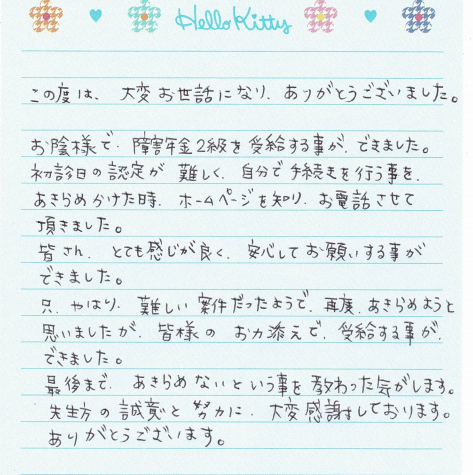 Hello Kitty
この度は、大変お世話になり、ありがとうございました。
お陰様で、障害年金2級を受給する事が、できました。
初診日の認定が難しく、自分で手続きを行う事を、
あきらめかけた時、ホームページを知り、お電話させて
頂きました。
皆さん、とても感じが良く、安心してお願いする事が
できました。
只、やはり、難しい案件だったようで、再度、あきらめようと
思いましたが、皆様のお力添えで、受給する事が、
できました。
最後まで、あきらめないという事を教わった気がします。
先生方の誠意と努力に、大変感謝しております。
ありがとうございます。